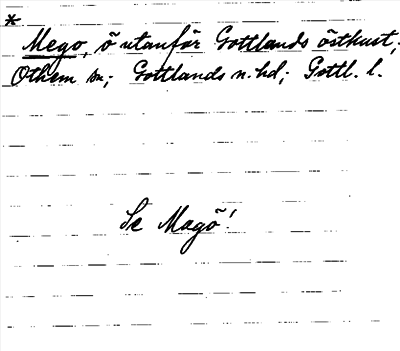 *
Mego, ö utanför Gottlands östkust;
Othem sn; Gottlands n. hd; Gottl. l.
Se Magö!